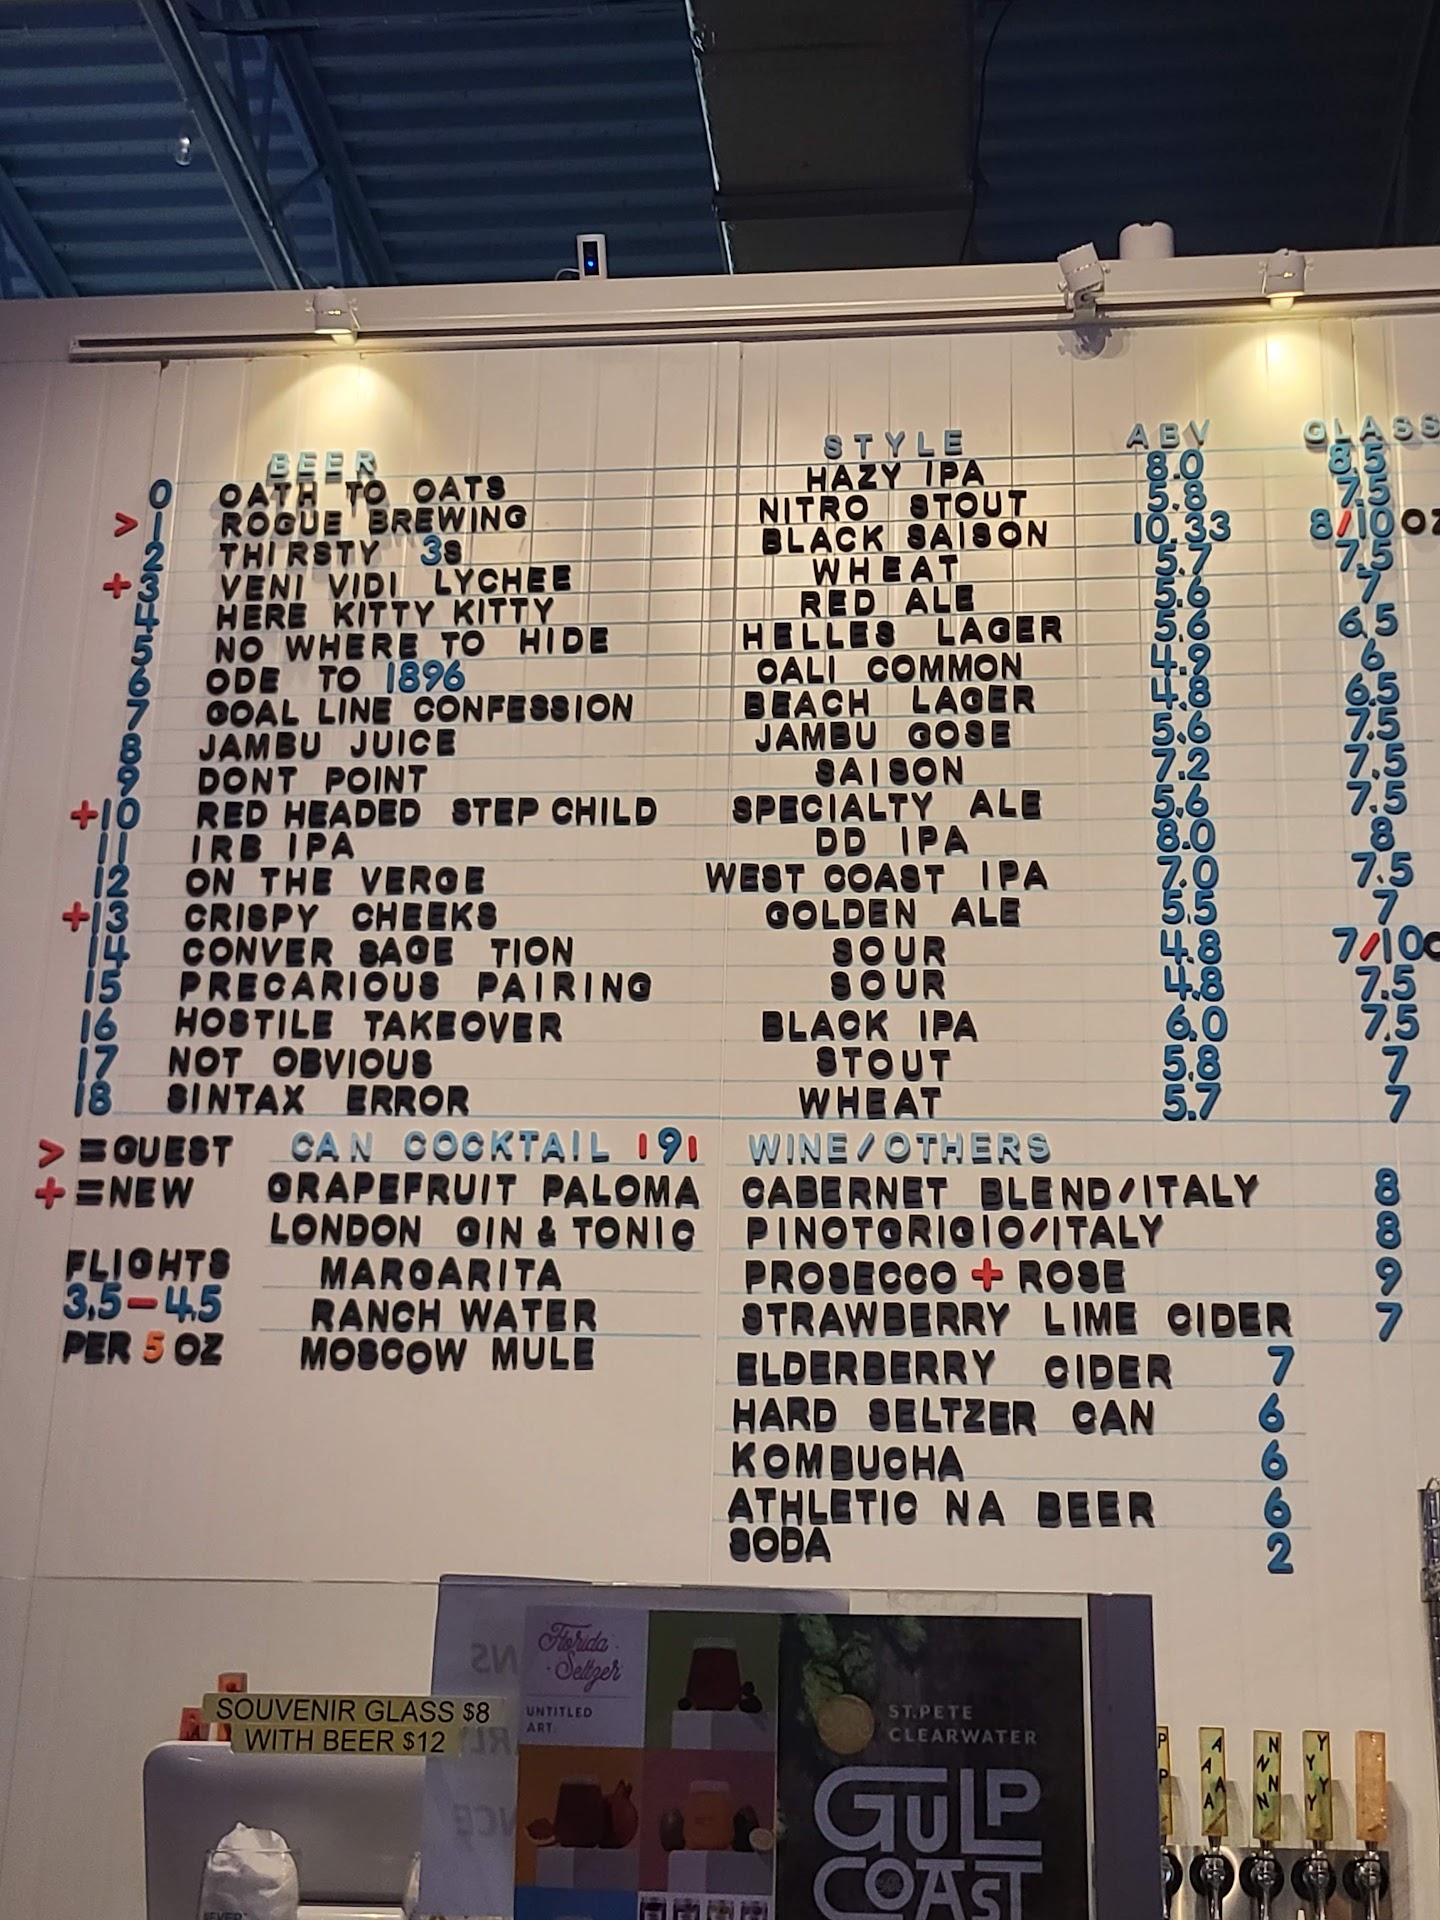 BEER STYLE ABV GLASS
0 OATH TO OATS HAZY IPA 8.0 8.5
> 1 ROGUE BREWING NITRO STOUT 5.8 7.5
2 THIRSTY 3S BLACK SAISON 10.33 8/10 OZ
+ 3 VENI VIDI LYCHEE WHEAT 5.7 7.5
4 HERE KITTY KITTY RED ALE 5.6 7
5 NO WHERE TO HIDE HELLES LAGER 5.6 6.5
6 ODE TO 1896 CALI COMMON 4.9 6
7 GOAL LINE CONFESSION BEACH LAGER 4.8 6.5
8 JAMBU JUICE JAMBU GOSE 5.6 7.5
9 DONT POINT SAISON 7.2 7.5
+10 RED HEADED STEP CHILD SPECIALTY ALE 5.6 7.5
11 IRB IPA DD IPA 8.0 8
12 ON THE VERGE WEST COAST IPA 7.0 7.5
+13 CRISPY CHEEKS GOLDEN ALE 5.5 7
14 CONVER SAGE TION SOUR 4.8 7/10O
15 PRECARIOUS PAIRING SOUR 4.8 7.5
16 HOSTILE TAKEOVER BLACK IPA 6.0 7.5
17 NOT OBVIOUS STOUT 5.8 7
18 SINTAX ERROR WHEAT 5.7 7
> =GUEST CAN COCKTAIL |9| WINE/OTHERS
+ =NEW GRAPEFRUIT PALOMA CABERNET BLEND/ITALY 8
LONDON GIN & TONIC PINOTGRIGIO/ITALY 8
FLIGHTS MARGARITA PROSECCO + ROSE 9
3.5-4.5 RANCH WATER STRAWBERRY LIME CIDER 7
PER 5 OZ MOSCOW MULE ELDERBERRY CIDER 7
HARD SELTZER CAN 6
KOMBUCHA 6
ATHLETIC NA BEER 6
SODA 2
SOUVENIR GLASS $8
WITH BEER $12
Florida
Seltzer
UNTITLED
ART.
ST.PETE
CLEARWATER
GULP
COAST
P
P
A
A
A
A
N
N
N
N
Y
Y
Y
Y